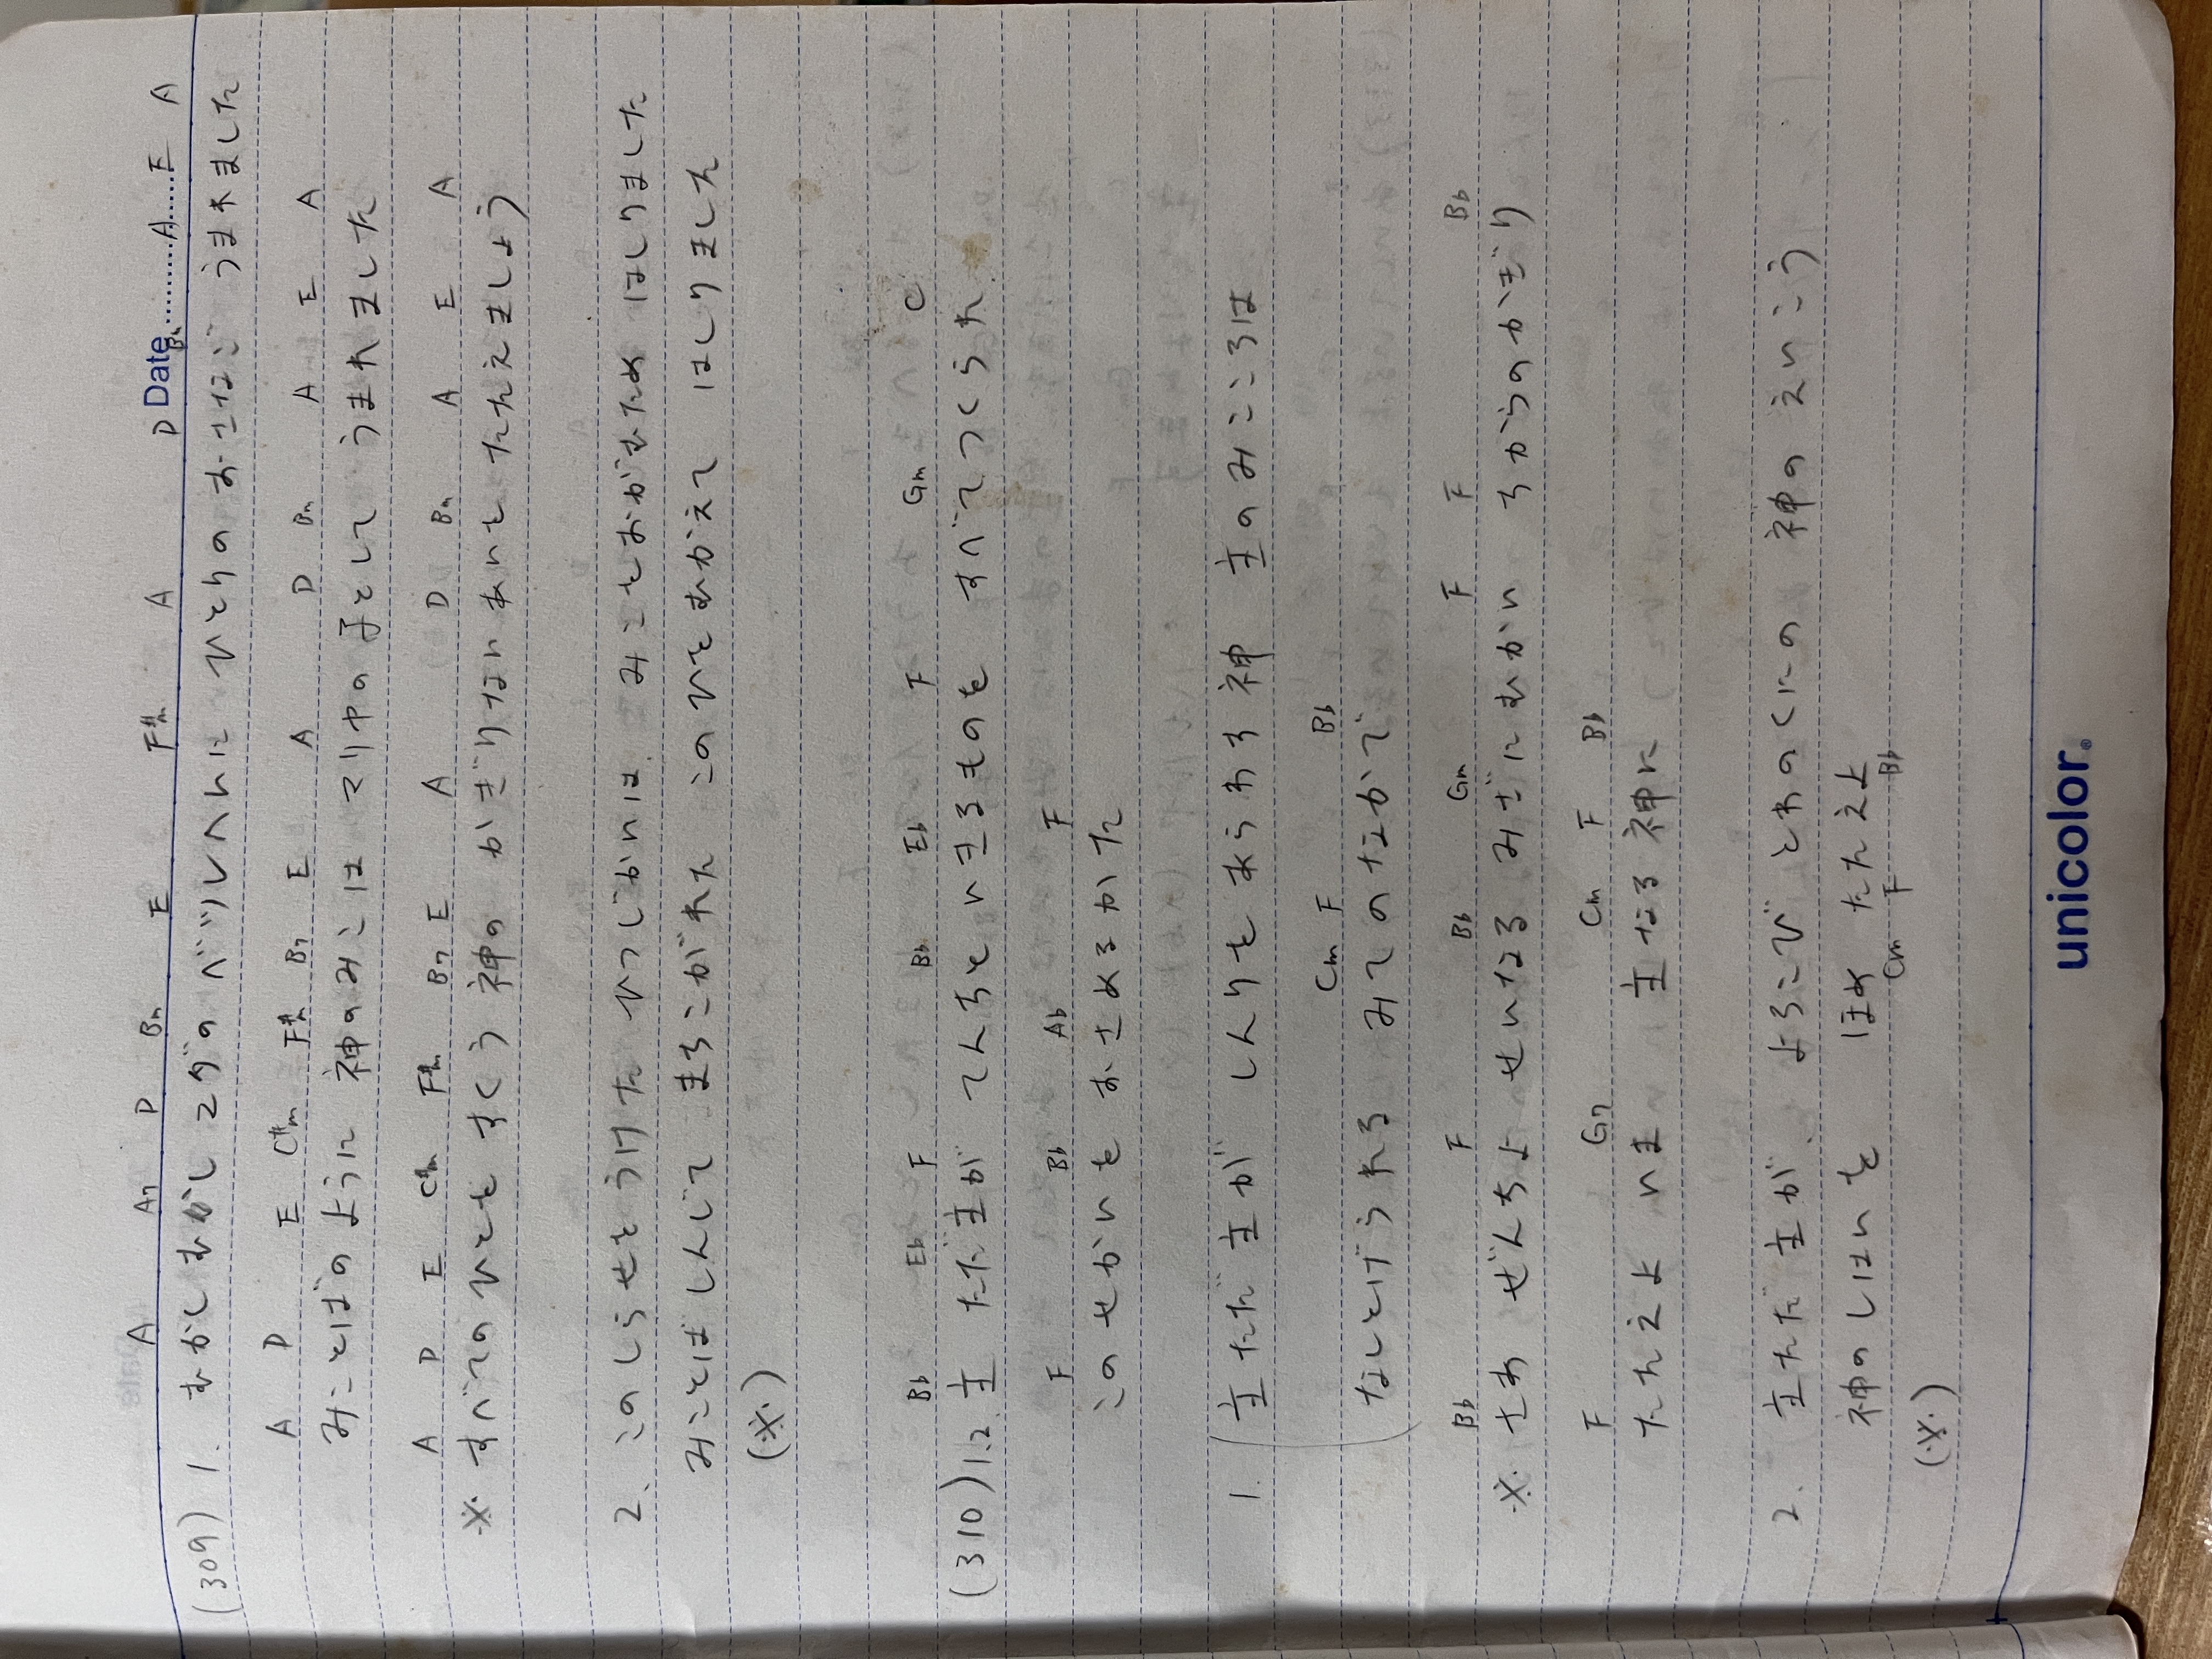 D Date
A A7 D Bm E F#m A D Bm A E A
(309) 1. むかしむかしユダのベツレヘムに ひとりのおさなご うまれました
A D E C#m F#m B7 E A D Bm A E A
みことばのように 神のみこは マリヤの子として うまれました
A D E C#m F#m B7 E A D Bm A E A
※ すべてのひとを すくう神の かぎりないあいを たたえましょう
2. このしらせをうけた ひつじかいは みこをおがむため はしりました
みことばしんじて まちこがれた このひをむかえて はしりました
(※)
Bb Eb F Bb Eb F Gm C
(310) 1.2. 主 ただ主が てんちと いきるものを すべてつくられ
F Bb Ab F
このせかいを おさめるかた
1. 主 ただ 主が しんりをあらわす神 主のみこころは
Cm F Bb
なしとげられる みてのなかで
Bb F Bb Gm F F Bb
※ さあ ぜんちよ せいなる みざにむかい ちからのかぎり
F G7 Cm F Bb
たたえよ いま 主なる神に
2. 主ただ主が よろこび とわのくにの 神の えいこう
神のしはいを ほめ たたえよ
Cm F Bb
(※)
unicolor®